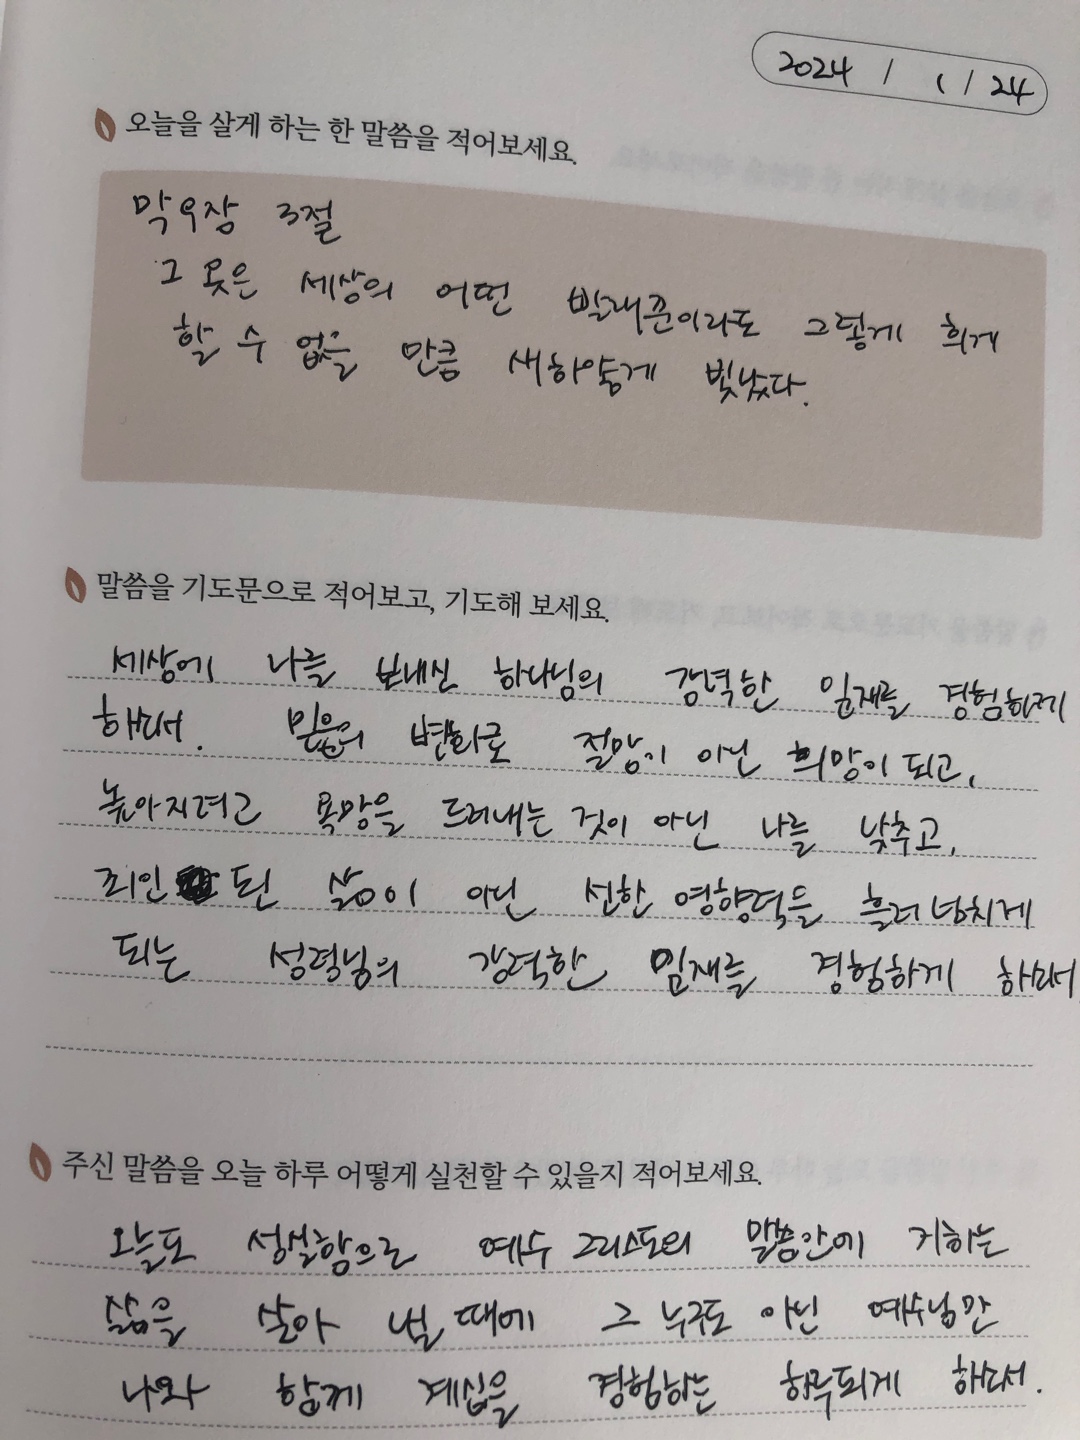 2024 / 1 / 24
오늘을 살게 하는 한 말씀을 적어보세요.
막9장 3절
그 옷은 세상의 어떤 빨래꾼이라도 그렇게 희게
할 수 없을 만큼 새하얗게 빛났다.
말씀을 기도문으로 적어보고, 기도해 보세요.
세상에 나를 보내신 하나님의 강력한 임재를 경험하게
하소서. 믿음의 변화로 절망이 아닌 희망이 되고,
높아지려고 욕망을 드러내는 것이 아닌 나를 낮추고,
죄인 된 삶이 아닌 선한 영향력을 흘러넘치게
되는 성령님의 강력한 임재를 경험하게 하소서
주신 말씀을 오늘 하루 어떻게 실천할 수 있을지 적어보세요.
오늘도 성실함으로 예수 그리스도의 말씀안에 거하는
삶을 살아 낼 때에 그 누구도 아닌 예수님만
나와 함께 계심을 경험하는 하루되게 하소서.